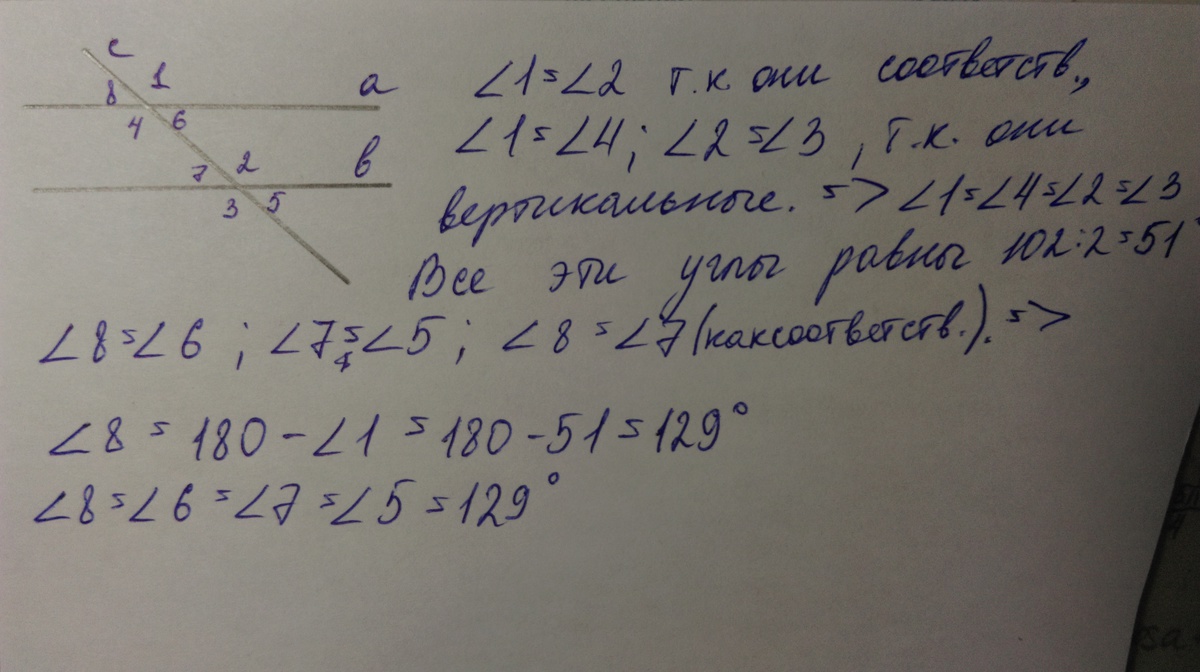 c
8 1 a
4 6
7 2 в
3 5
∠1=∠2 т.к они соответств.,
∠1=∠4; ∠2=∠3, т.к. они
вертикальные. => ∠1=∠4=∠2=∠3
Все эти углы равны 102:2=51°
∠8=∠6; ∠7=∠5; ∠8=∠7(каксоответств.). =>
∠8=180-∠1=180-51=129°
∠8=∠6=∠7=∠5=129°